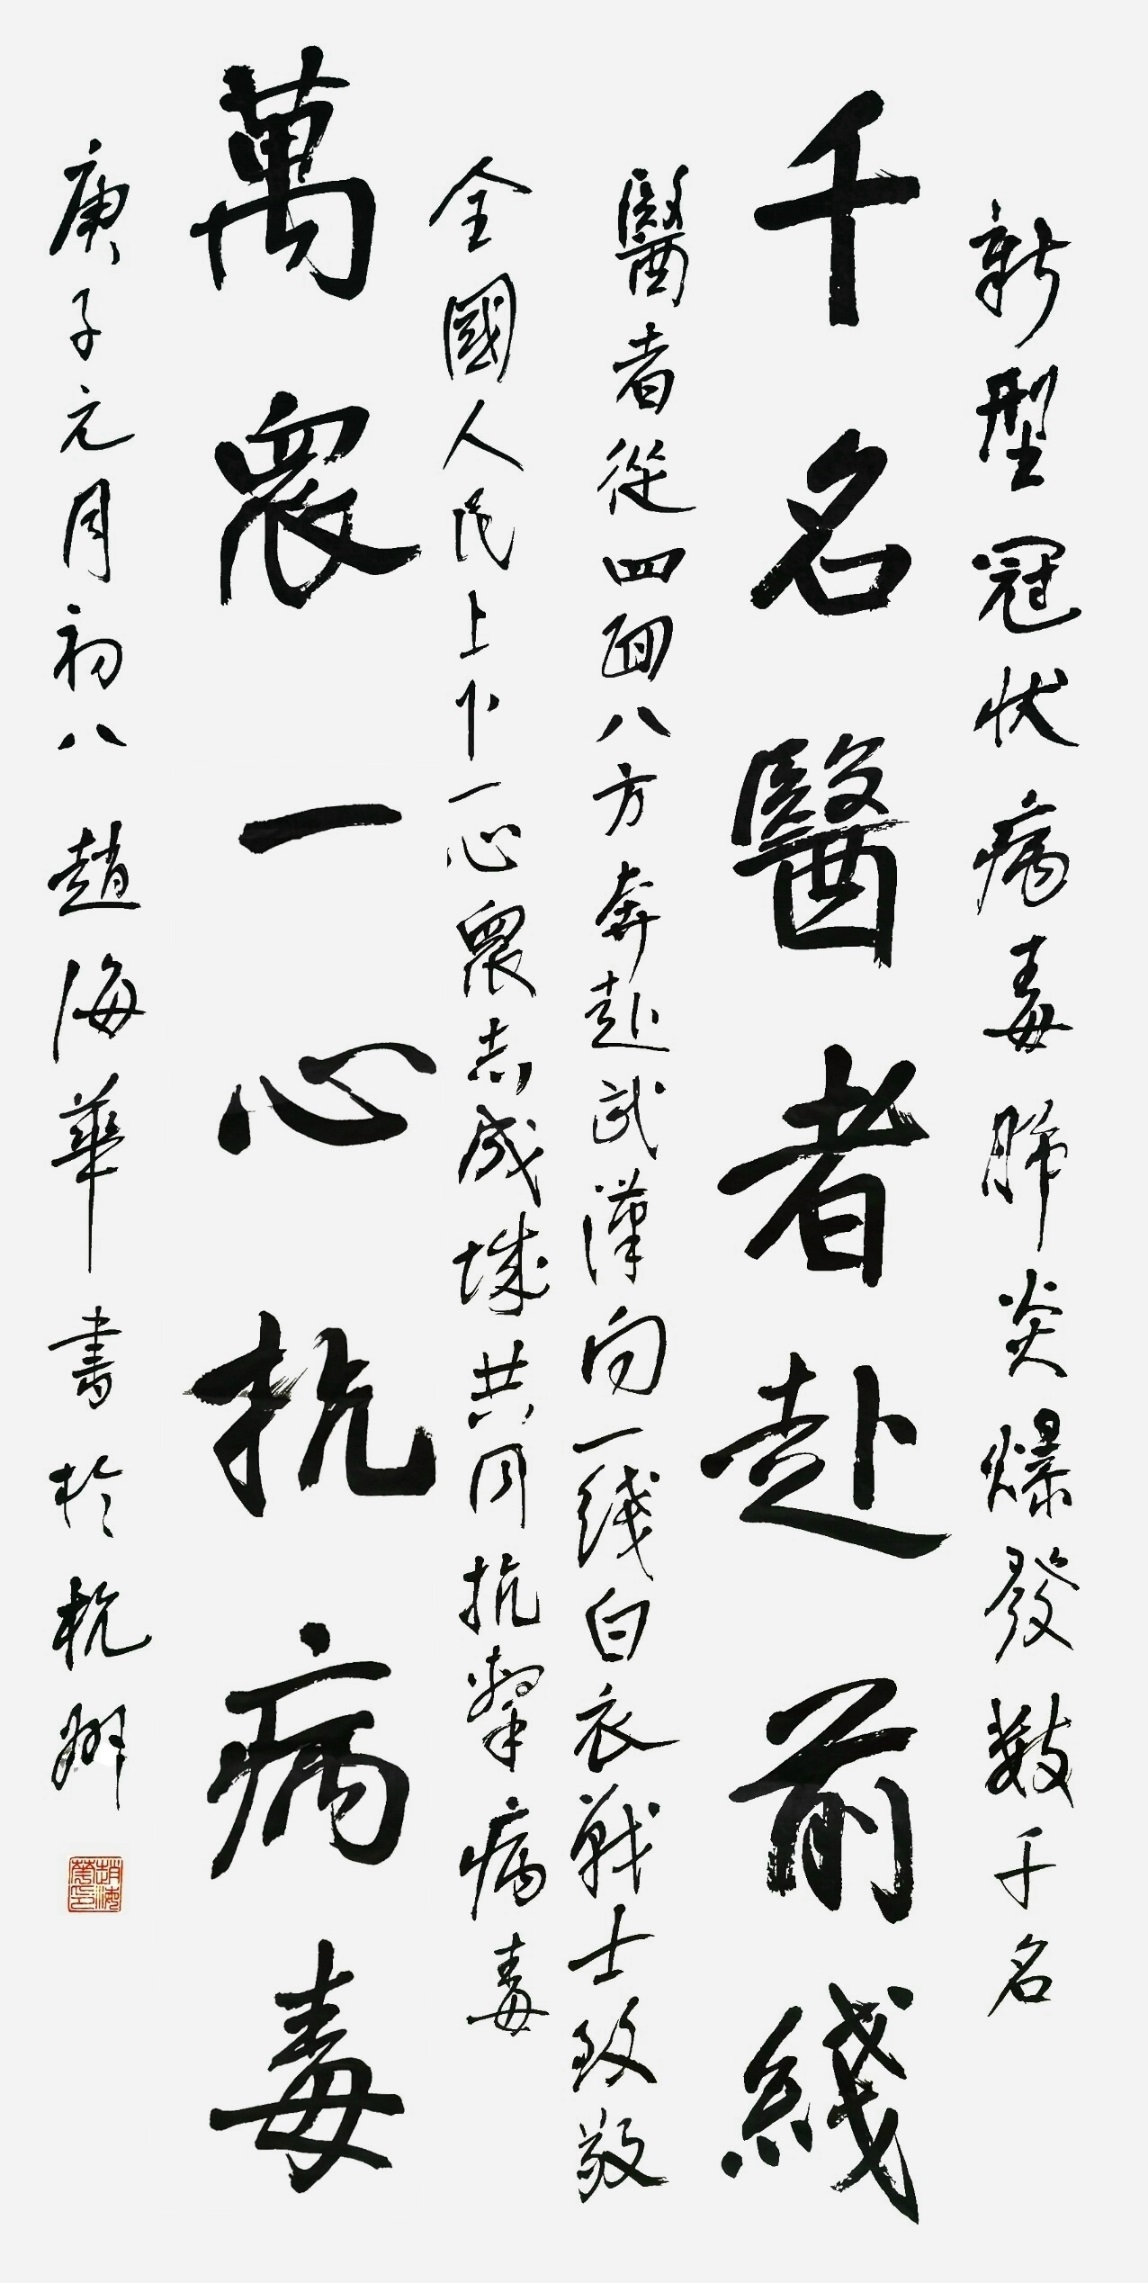 新型冠状病毒肺炎爆發数千名
千名醫者赴前綫
醫者從四面八方奔赴武漢向一线白衣戰士致敬
全國人民上下一心眾志成城共同抗擊病毒
萬眾一心抗病毒
庚子元月初八 趙海華 書於杭州
趙海華印